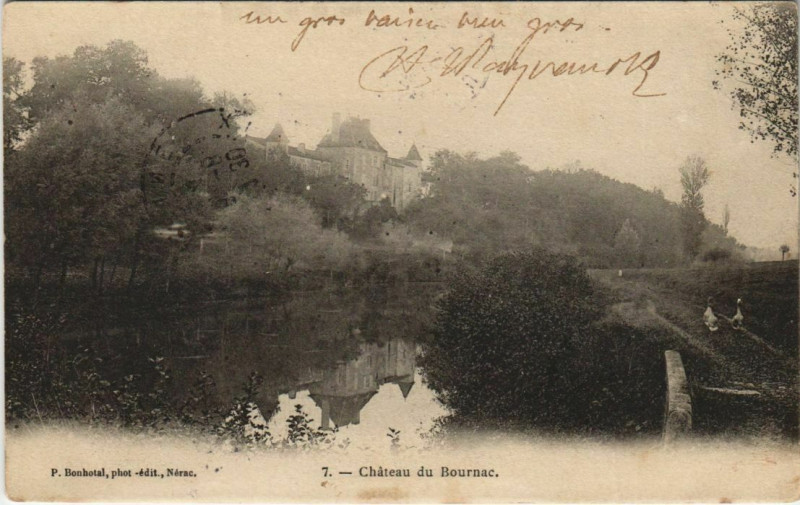 un gros baiser bien gros.
P. Bonhotal, phot -édit., Nérac.
7. — Château du Bournac.